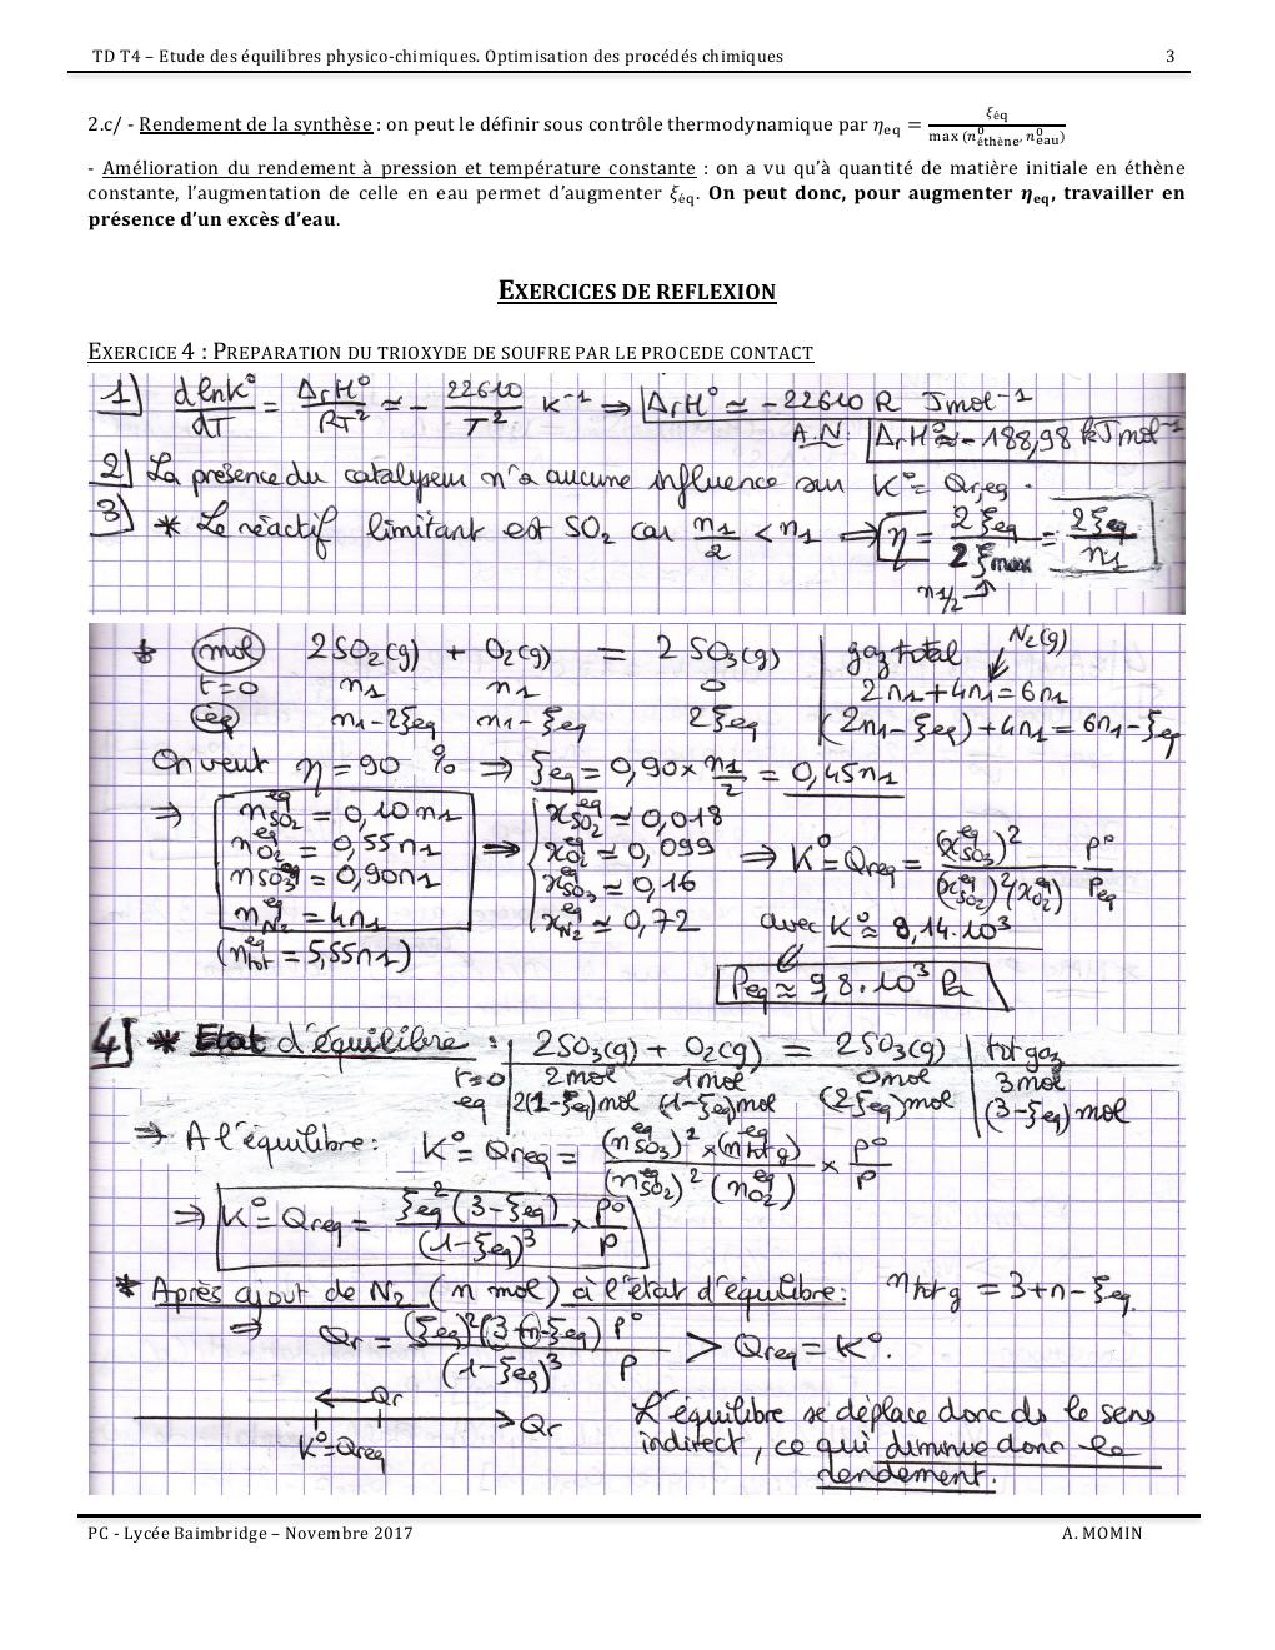 TD T4 – Etude des équilibres physico-chimiques. Optimisation des procédés chimiques 3
2.c/ - Rendement de la synthèse : on peut le définir sous contrôle thermodynamique par η_eq = ξ_éq / max (n⁰_éthène, n⁰_eau)
- Amélioration du rendement à pression et température constante : on a vu qu'à quantité de matière initiale en éthène
constante, l'augmentation de celle en eau permet d'augmenter ξ_éq. On peut donc, pour augmenter η_eq, travailler en
présence d'un excès d'eau.
EXERCICES DE REFLEXION
EXERCICE 4 : PREPARATION DU TRIOXYDE DE SOUFRE PAR LE PROCEDE CONTACT
1) d lnK°/dT = ΔrH°/RT² ≃ - 22610/T² K⁻¹ ⇒ ΔrH° ≃ -22610 R J mol⁻¹
A.N: ΔrH° ≈ -188,98 kJ mol⁻¹
2) La présence du catalyseur n'a aucune influence sur K° = Qr,eq.
3) * Le réactif limitant est SO₂ car n₁/2 < n₁ ⇒ η = 2ξeq / 2ξmax = 2ξeq / n₁
n₁/2
* (mol) 2SO₂(g) + O₂(g) = 2SO₃(g) | gaz total N₂(g)
t=0 n₁ n₁ 0 2n₁+4n₁=6n₁
(eq) n₁-2ξeq n₁-ξeq 2ξeq (2n₁-ξeq)+4n₁=6n₁-ξeq
On veut η = 90 % ⇒ ξeq = 0,90 × n₁/2 = 0,45n₁
⇒ n^eq_SO₂ = 0,10n₁ x^eq_SO₂ ≃ 0,018
n^eq_O₂ = 0,55n₁ ⇒ x^eq_O₂ ≃ 0,099 ⇒ K° = Qreq = (x^eq_SO₃)² / (x^eq_SO₂)²(x^eq_O₂) P°/Peq
n^eq_SO₃ = 0,90n₁ x^eq_SO₃ ≃ 0,16
n^eq_N₂ = 4n₁ x^eq_N₂ ≃ 0,72 avec K° ≃ 8,14.10³
(n^eq_tot = 5,55n₁)
Peq ≈ 9,8.10³ Pa
4] * Etat d'équilibre : 2SO₃(g) + O₂(g) = 2SO₃(g) | tot gaz
t=0 2mol 1mol 0mol 3mol
eq 2(1-ξeq)mol (1-ξeq)mol (2ξeq)mol (3-ξeq)mol
⇒ A l'équilibre: K° = Qreq = (n^eq_SO₃)² × (n^eq_tot g) / (n^eq_SO₂)² (n^eq_O₂) × P°/P
⇒ K° = Qreq = ξeq² (3-ξeq) / (1-ξeq)³ × P°/P
* Après ajout de N₂ (n mol) à l'état d'équilibre: n_tot g = 3+n-ξeq.
⇒ Qr = (ξeq)²(3+n-ξeq) / (1-ξeq)³ P°/P > Qreq = K°.
Qr
Qr
K°=Qreq
L'équilibre se déplace donc ds le sens
indirect, ce qui diminue donc le
rendement.
PC - Lycée Baimbridge – Novembre 2017 A. MOMIN